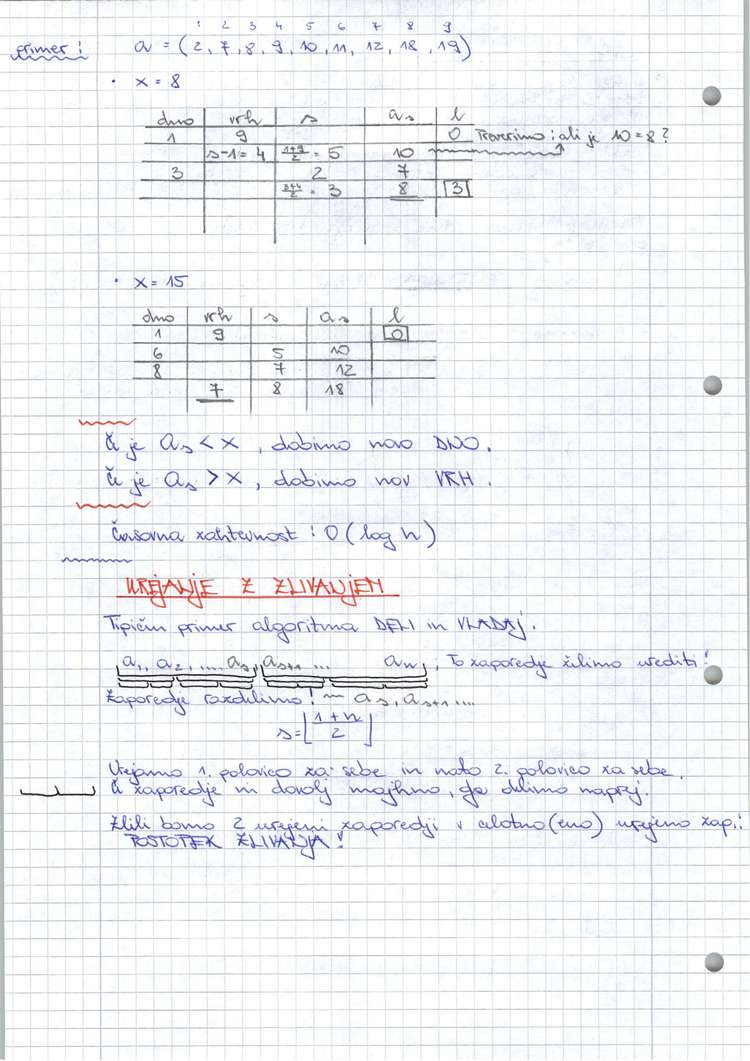 1 2 3 4 5 6 7 8 9
primer: a = (2, 7, 8, 9, 10, 11, 12, 18, 19)
• x = 8
dno vrh s a_s l
1 9 0 Preverimo: ali je 10 = 8?
s-1 = 4 1+9/2 = 5 10
3 2 7
3+4/2 = 3 8 3
• x = 15
dno vrh s a_s l
1 9 0
6 5 10
8 7 12
7 8 18
Če je a_s < x, dobimo novo DNO.
Če je a_s > x, dobimo nov VRH.
Časovna zahtevnost: O(log n)
UREJANJE Z ZLIVANJEM
Tipičen primer algoritma DELI in VLADAJ.
a_1, a_2, .... a_s, a_s+1 ... a_n, To zaporedje želimo urediti!
Zaporedje razdelimo! ~ a_s, a_s+1 ....
s = ⌊1+n/2⌋
Urejamo 1. polovico za sebe in nato 2. polovico za sebe.
Če zaporedje ni dovolj majhno, ga delimo naprej.
Zlili bomo 2 urejeni zaporedji v celotno (eno) urejeno zap.:
POSTOPEK ZLIVANJA!